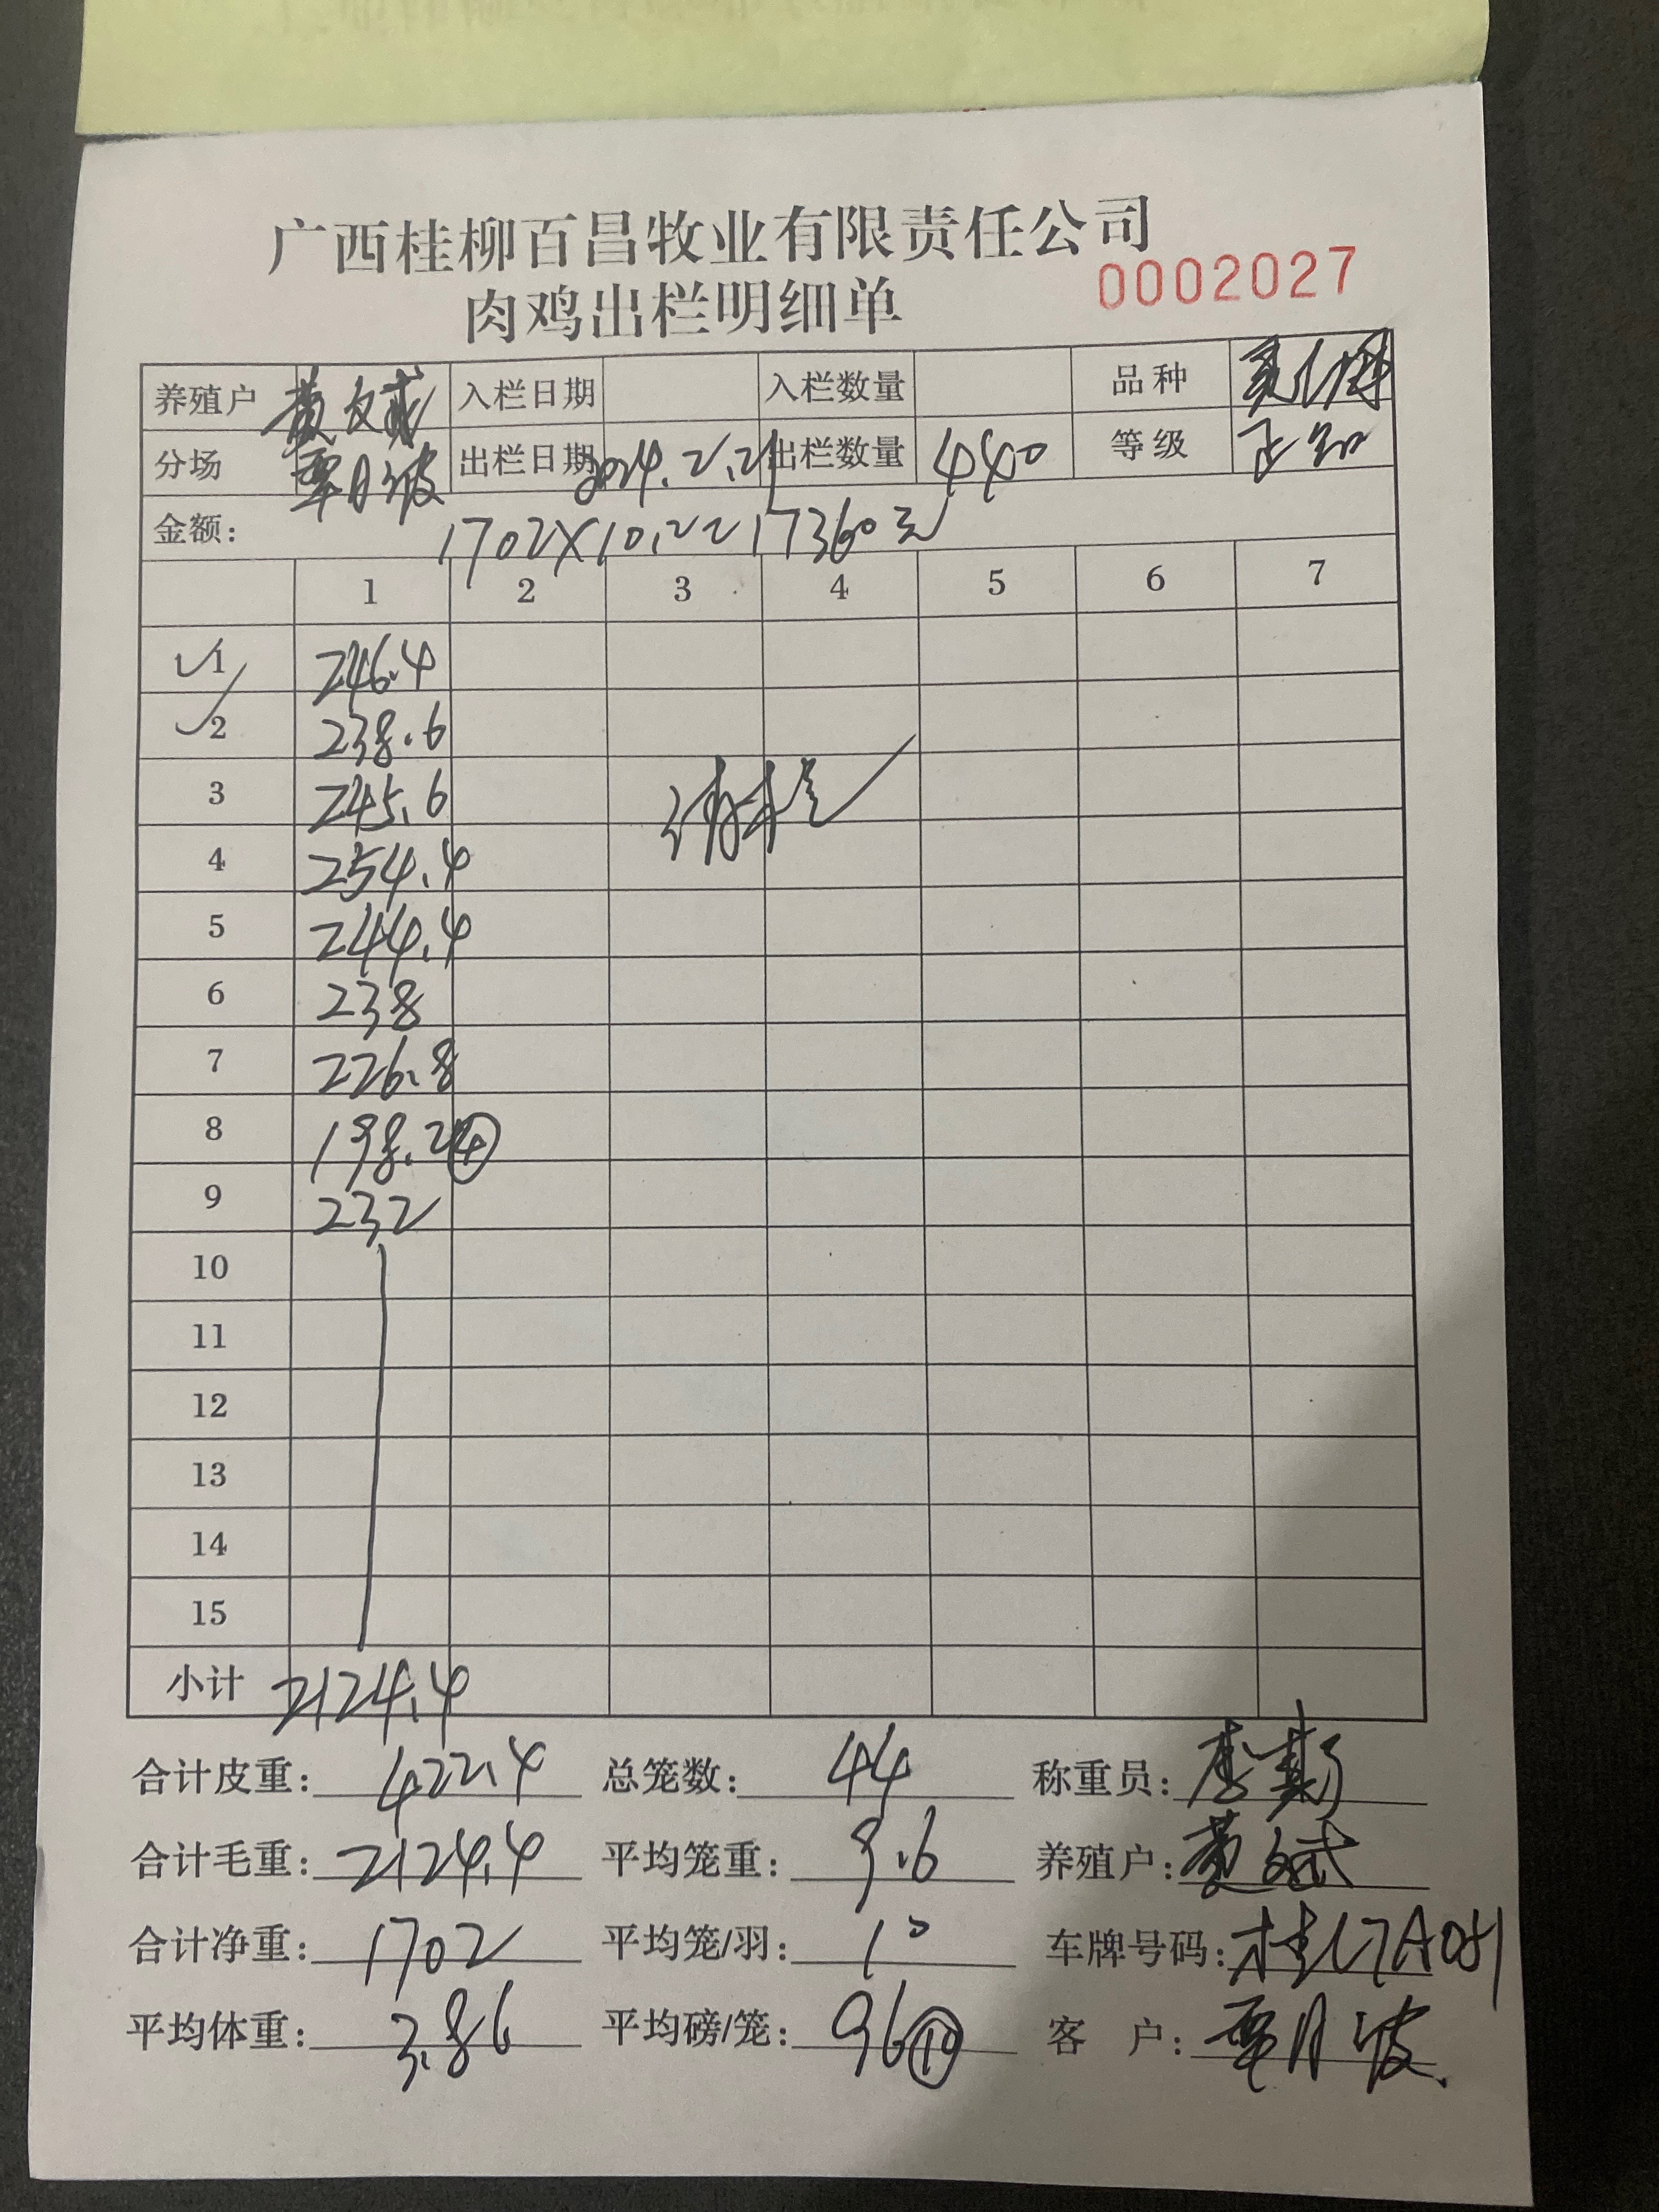 广西桂柳百昌牧业有限责任公司
肉鸡出栏明细单 0002027
养殖户 黄文斌 入栏日期 入栏数量 品种
分场 覃月波 出栏日期 2024.2.21 出栏数量 440 等级
金额: 1702X10.2 17360元
1 2 3 4 5 6 7
1 246.4
2 238.6
3 245.6
4 254.4
5 244.4
6 238
7 226.8
8 198.2 ④
9 232
10
11
12
13
14
15
小计 2124.4
合计皮重: 422.4 总笼数: 44 称重员: 李
合计毛重: 2124.4 平均笼重: 9.6 养殖户: 黄文斌
合计净重: 1702 平均笼/羽: 10 车牌号码: 桂
平均体重: 3.86 平均磅/笼: 96⑩ 客 户: 覃月波